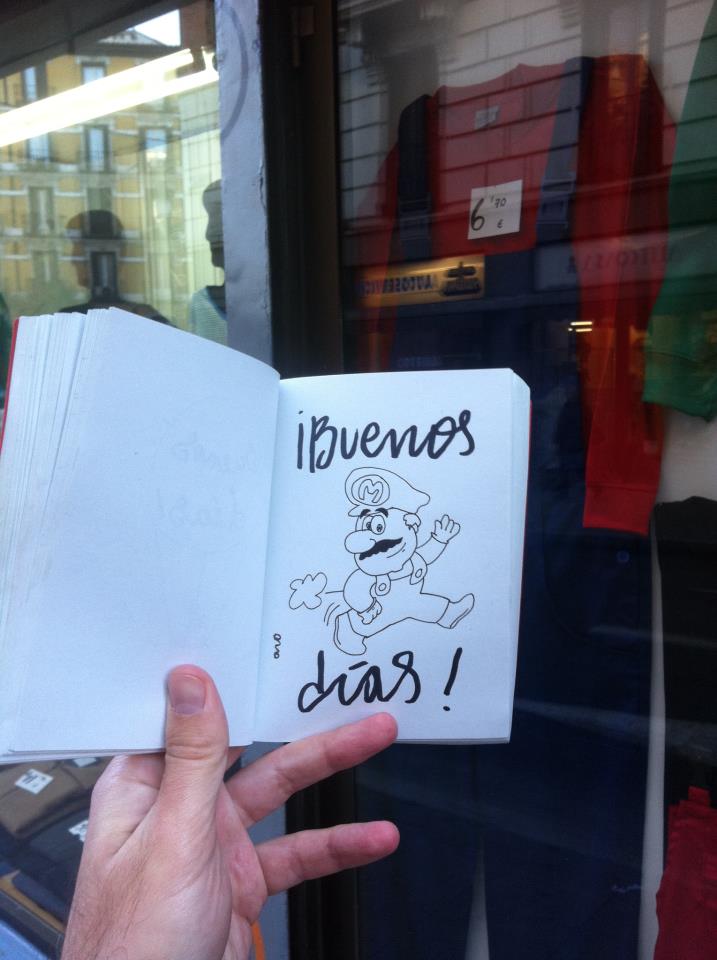 ¡Buenos
M
días!
ovo
6'70
€